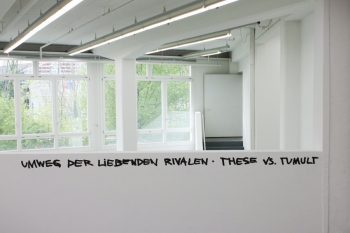 UMWEG DER LIEBENDEN RIVALEN · THESE VS. TUMULT